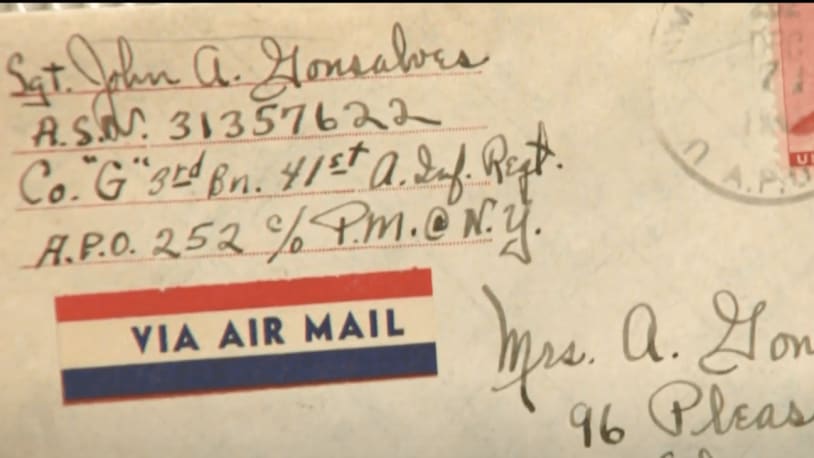 Sgt. John A. Gonsalves
A.S.N. 31357622
Co. "G" 3rd Bn. 41st A. Inf. Regt.
A.P.O. 252 c/o P.M. @ N.Y.
VIA AIR MAIL
Mrs. A. Gon
96 Pleas
A.P.O
U